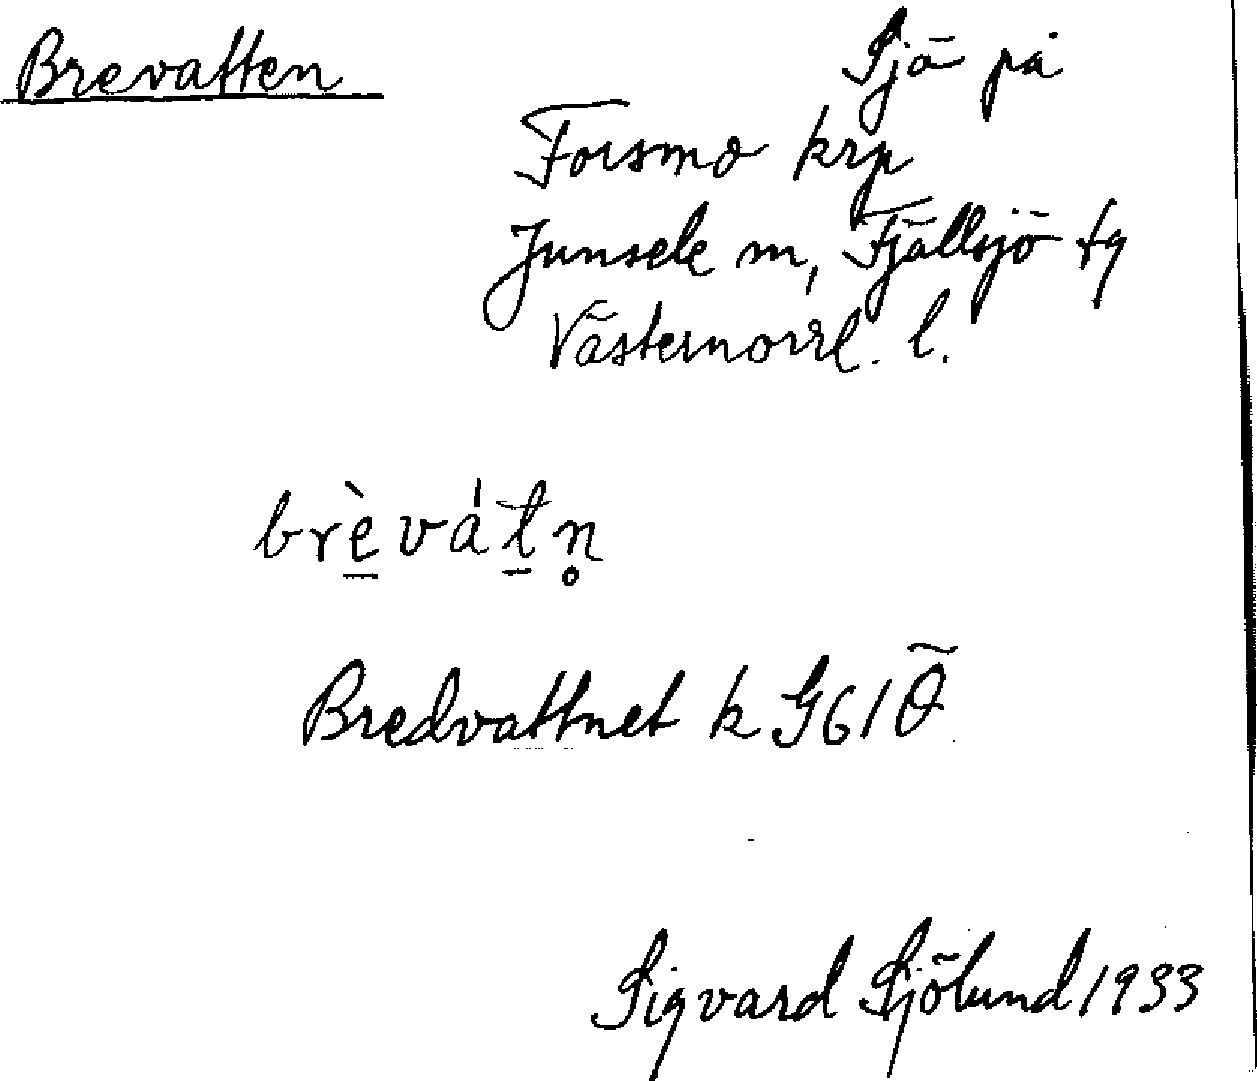 Brevatten
Sjö på
Forsmo krp
Junsele sn, Fjällsjö tg
Västernorrl. l.
brè̱vát̠n̥
Bredvattnet k G61 Ö
Sigvard Sjölund 1933